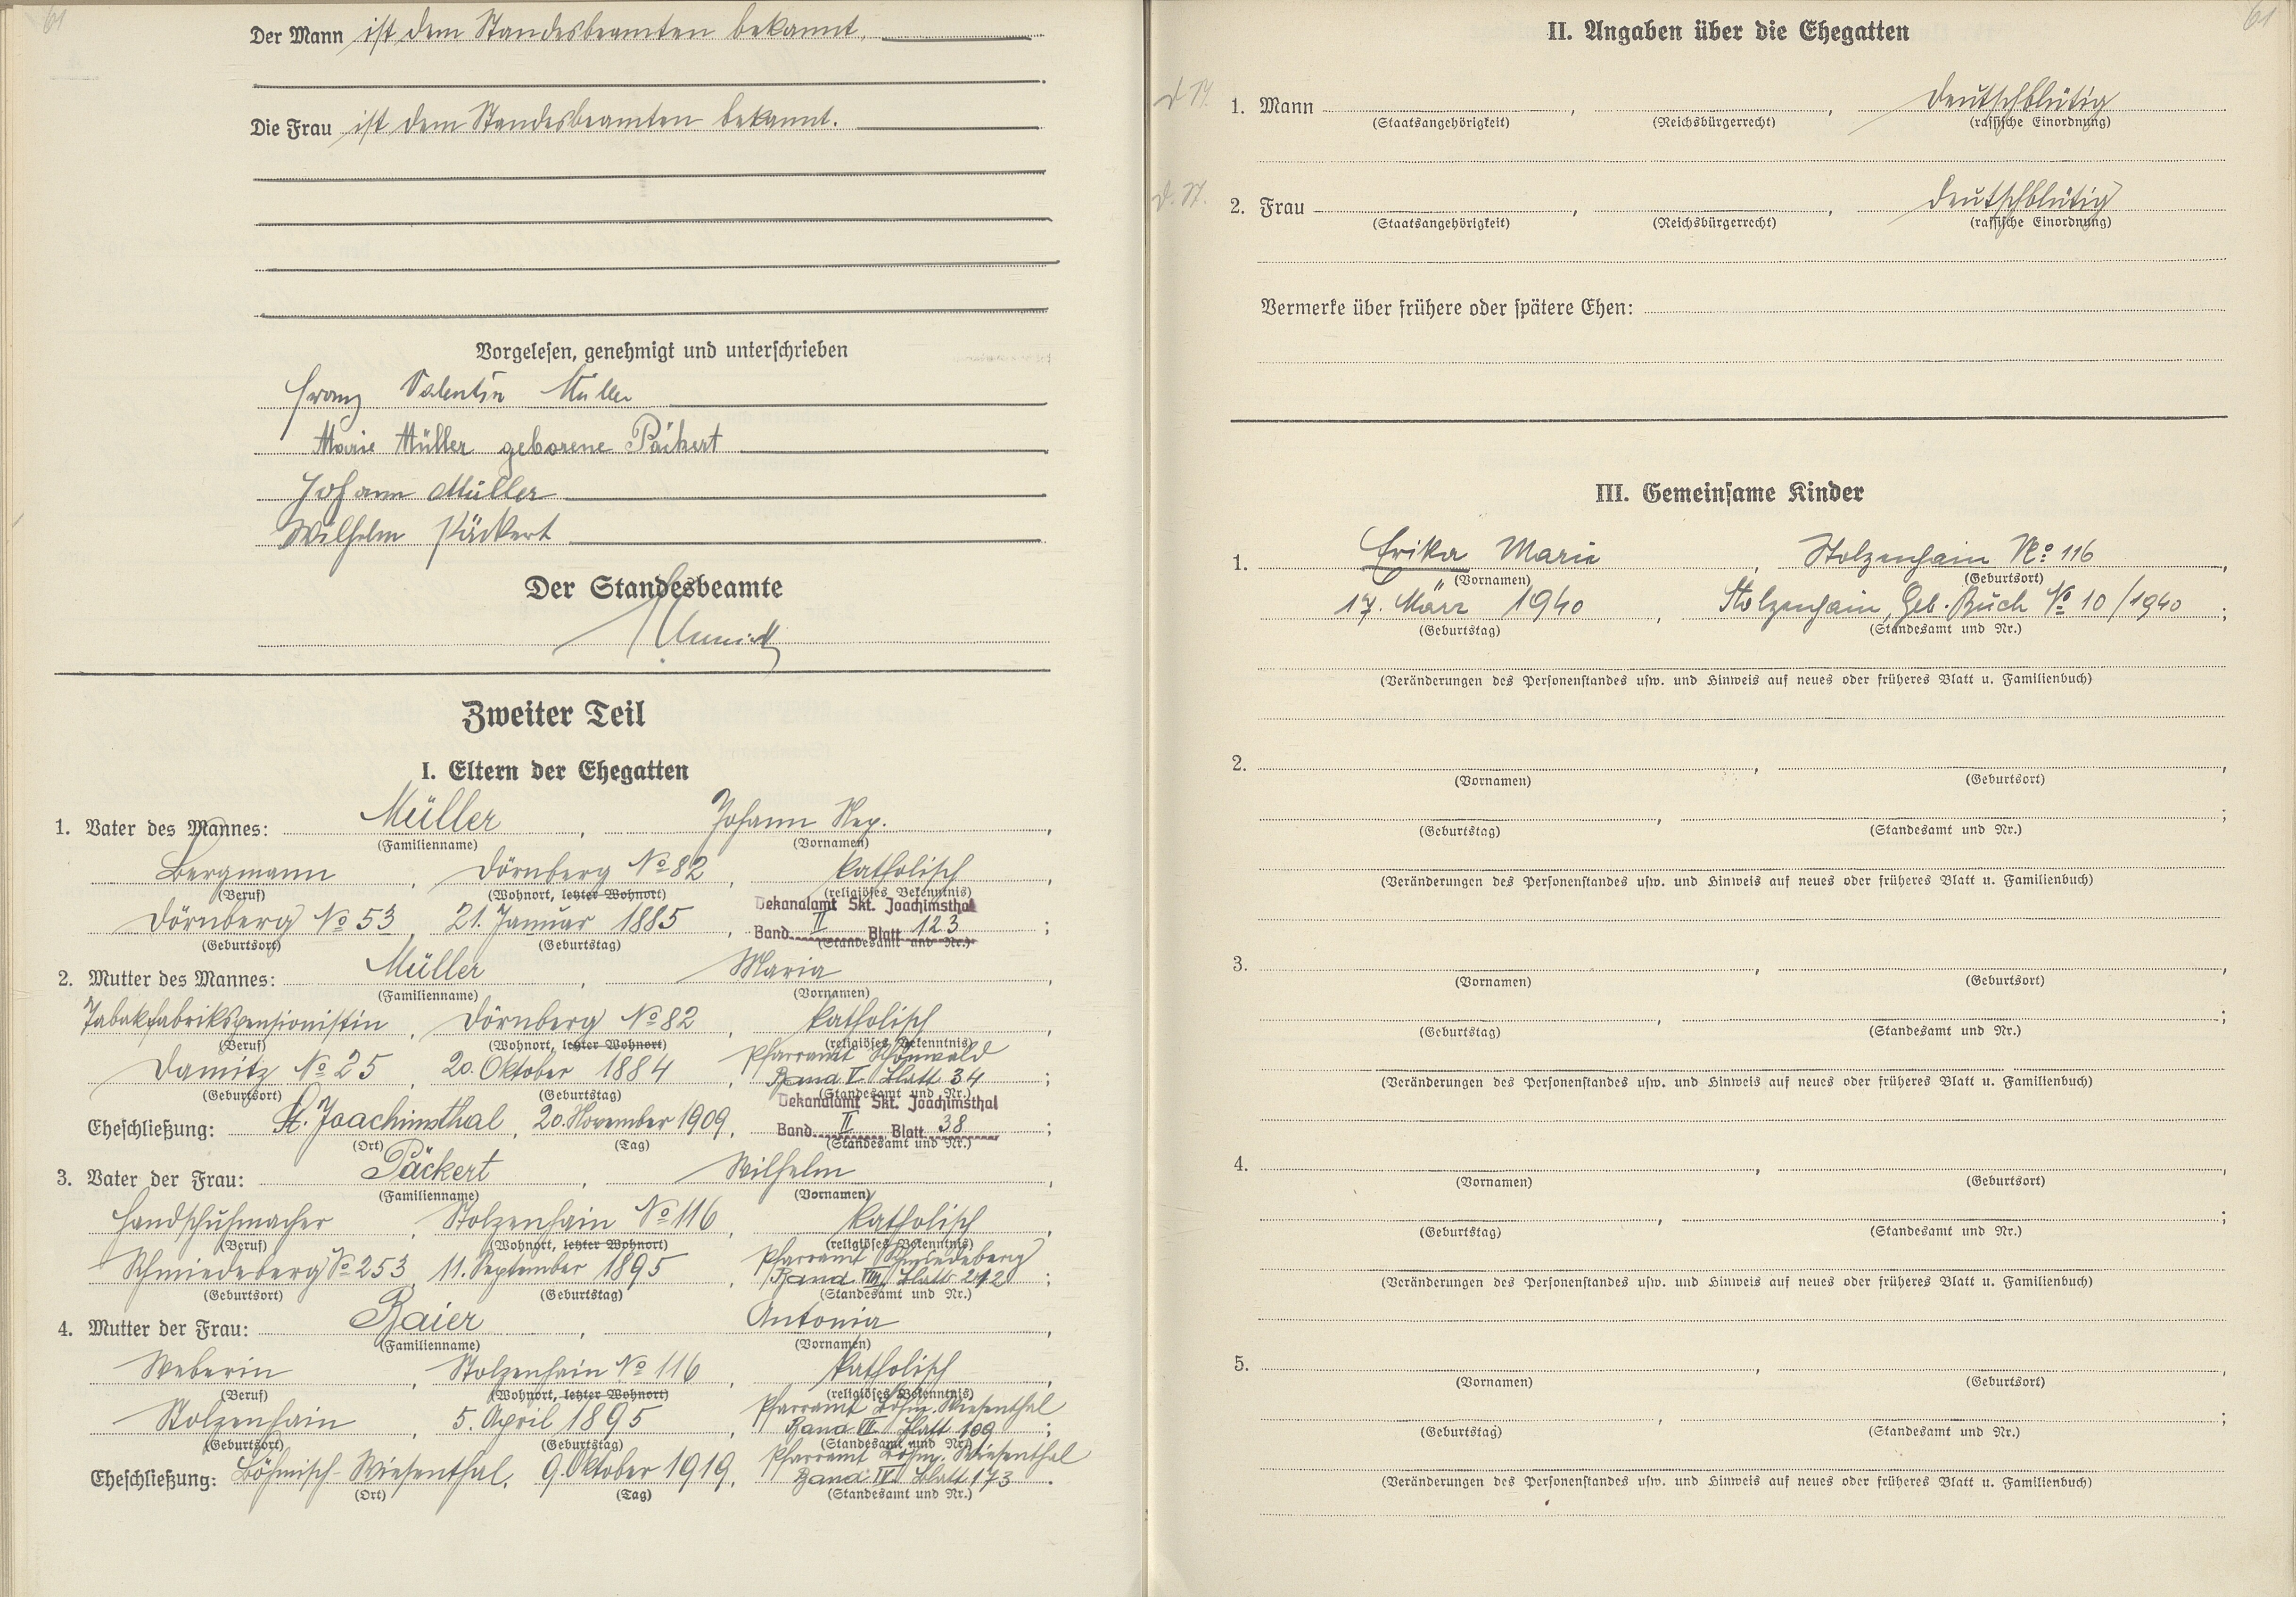 61
Der Mann ist dem Standesbeamten bekannt.
Die Frau ist dem Standesbeamten bekannt.
Vorgelesen, genehmigt und unterschrieben
Franz Valentin Müller
Marie Müller geborene Päckert
Johann Müller
Wilhelm Päckert
Der Standesbeamte
Zweiter Teil
I. Eltern der Ehegatten
1. Vater des Mannes: Müller, Johann Nep.
(Familienname) (Vornamen)
Bergmann, Dörnberg No 82, katholisch,
(Beruf) (Wohnort, letzter Wohnort) (religiöses Bekenntnis)
Dekanalamt Skt. Joachimsthal
Dörnberg No 53, 21. Januar 1885, Band II Blatt 123;
(Geburtsort) (Geburtstag) (Standesamt und Nr.)
2. Mutter des Mannes: Müller, Maria,
(Familienname) (Vornamen)
Tabakfabrikspensionistin, Dörnberg No 82, katholisch,
(Beruf) (Wohnort, letzter Wohnort) (religiöses Bekenntnis)
Pfarramt Schönwald
Damitz No 25, 20. Oktober 1884, Band V Blatt 34;
(Geburtsort) (Geburtstag) (Standesamt und Nr.)
Dekanalamt Skt. Joachimsthal
Eheschließung: St. Joachimsthal, 20. November 1909, Band II Blatt 38;
(Ort) (Tag) (Standesamt und Nr.)
3. Vater der Frau: Päckert, Wilhelm,
(Familienname) (Vornamen)
Handschuhmacher, Stolzenhain No 116, katholisch,
(Beruf) (Wohnort, letzter Wohnort) (religiöses Bekenntnis)
Pfarramt Schmiedeberg
Schmiedeberg No 253, 11. September 1895, Band VIII Blatt 212;
(Geburtsort) (Geburtstag) (Standesamt und Nr.)
4. Mutter der Frau: Baier, Antonia,
(Familienname) (Vornamen)
Weberin, Stolzenhain No 116, katholisch,
(Beruf) (Wohnort, letzter Wohnort) (religiöses Bekenntnis)
Pfarramt Böhm. Wiesenthal
Stolzenhain, 5. April 1895, Band III Blatt 109;
(Geburtsort) (Geburtstag) (Standesamt und Nr.)
Pfarramt Böhm. Wiesenthal
Eheschließung: Böhmisch-Wiesenthal, 9. Oktober 1919, Band IV Blatt 173.
(Ort) (Tag) (Standesamt und Nr.)
61
II. Angaben über die Ehegatten
1. Mann , , deutschblütig
(Staatsangehörigkeit) (Reichsbürgerrecht) (rassische Einordnung)
2. Frau , , deutschblütig
(Staatsangehörigkeit) (Reichsbürgerrecht) (rassische Einordnung)
Vermerke über frühere oder spätere Ehen:
III. Gemeinsame Kinder
1. Erika Marie, Stolzenhain No 116,
(Vornamen) (Geburtsort)
17. März 1940, Stolzenhain, Geb. Buch No 10/1940;
(Geburtstag) (Standesamt und Nr.)
(Veränderungen des Personenstandes usw. und Hinweis auf neues oder früheres Blatt u. Familienbuch)
2. , ,
(Vornamen) (Geburtsort)
, ;
(Geburtstag) (Standesamt und Nr.)
(Veränderungen des Personenstandes usw. und Hinweis auf neues oder früheres Blatt u. Familienbuch)
3. , ,
(Vornamen) (Geburtsort)
, ;
(Geburtstag) (Standesamt und Nr.)
(Veränderungen des Personenstandes usw. und Hinweis auf neues oder früheres Blatt u. Familienbuch)
4. , ,
(Vornamen) (Geburtsort)
, ;
(Geburtstag) (Standesamt und Nr.)
(Veränderungen des Personenstandes usw. und Hinweis auf neues oder früheres Blatt u. Familienbuch)
5. , ,
(Vornamen) (Geburtsort)
, ;
(Geburtstag) (Standesamt und Nr.)
(Veränderungen des Personenstandes usw. und Hinweis auf neues oder früheres Blatt u. Familienbuch)